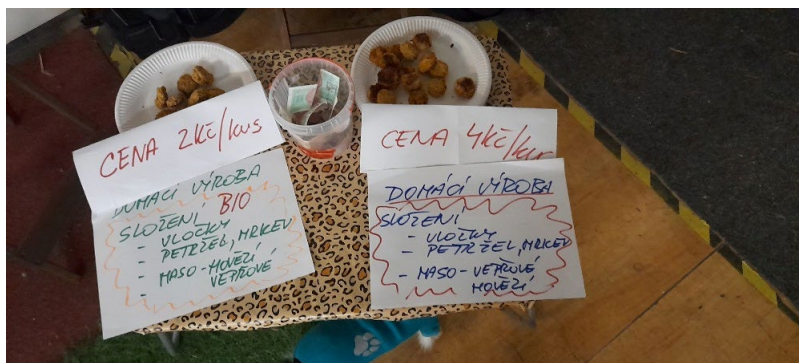 CENA 2KČ/KUS
DOMÁCÍ VÝROBA
SLOŽENÍ BIO
- VLOČKY
- PETRŽEL, MRKEV
- MASO - HOVĚZÍ
VEPŘOVÉ
-
CENA 4KČ/KUS
DOMÁCÍ VÝROBA
SLOŽENÍ
- VLOČKY
- PETRŽEL, MRKEV
- MASO - VEPŘOVÉ,
HOVĚZÍ
-